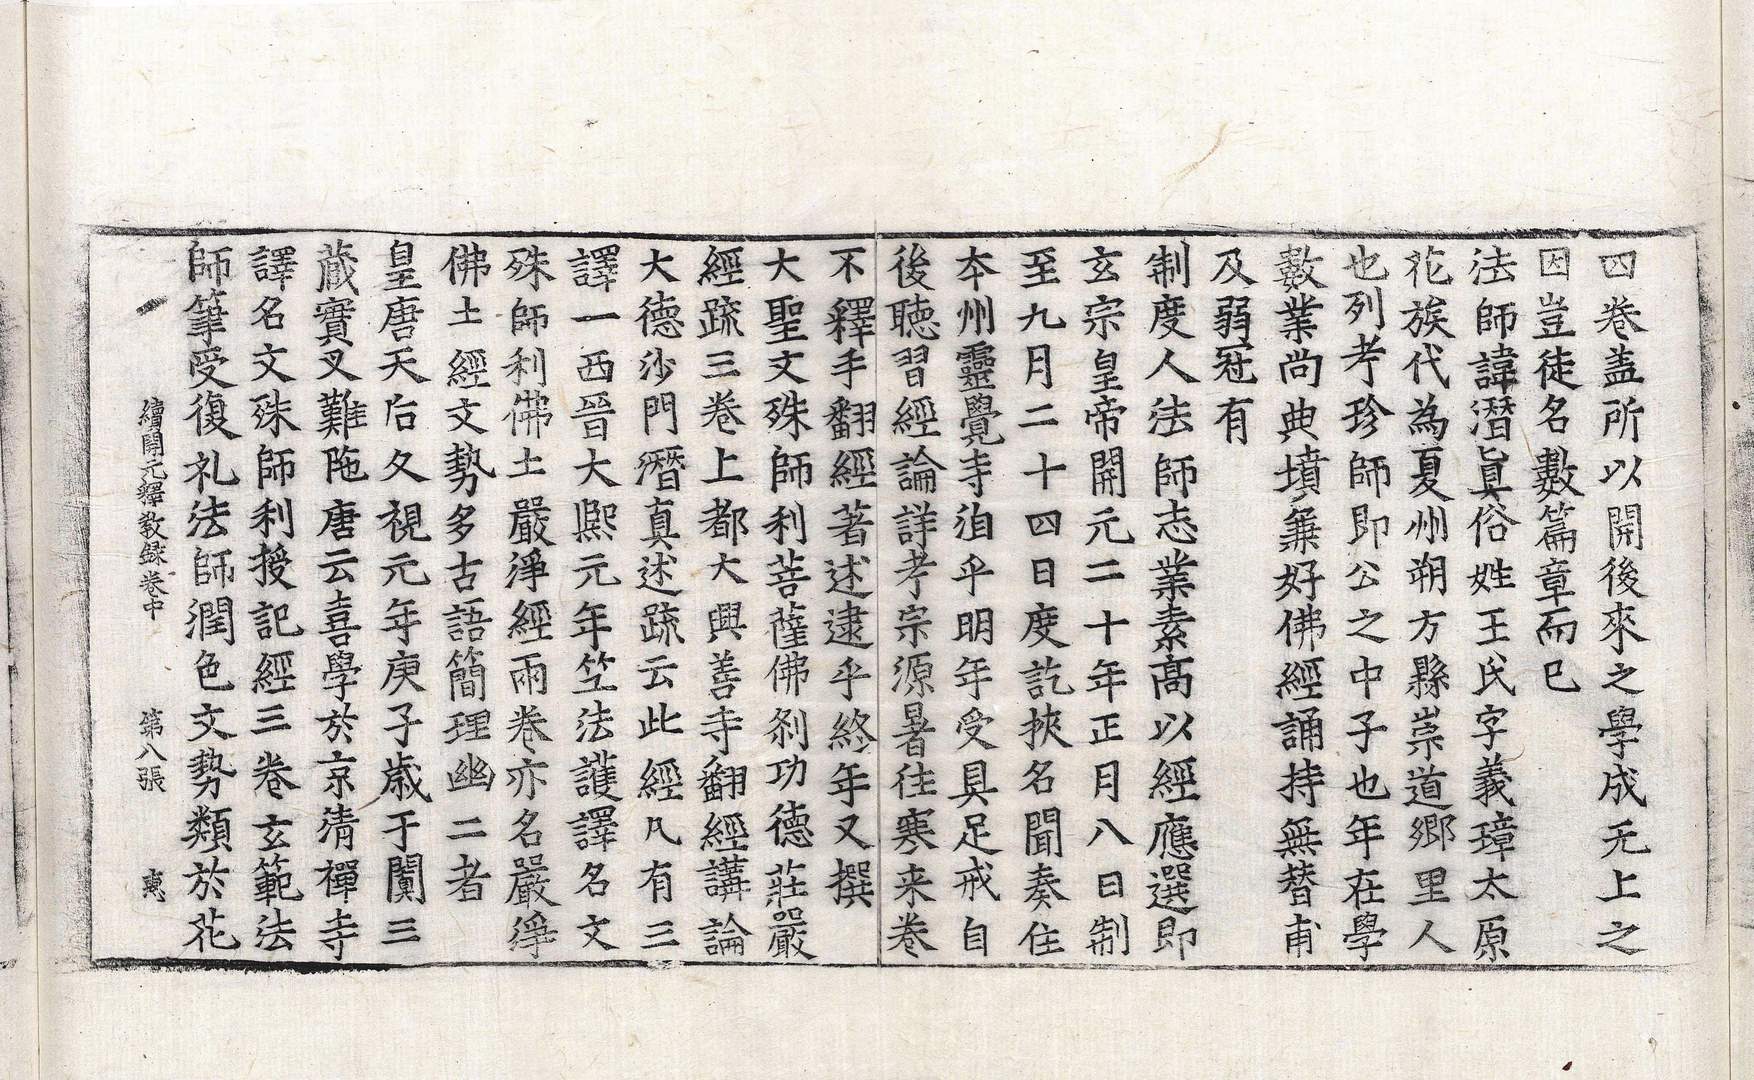 四卷盖所以開後來之學成无上之
因豈徒名數篇章而已
法師諱潛眞俗姓王氏字義璋太原
花族代為夏州朔方縣崇道鄉里人
也列考珍師即公之中子也年在學
數業尚典墳兼好佛經誦持無替甫
及弱冠有
制度人法師志業素高以經應選即
玄宗皇帝開元二十年正月八日制
至九月二十四日度訖挾名聞奏住
夲州靈覺寺洎乎明年受具足戒自
後聽習經論詳考宗源暑往寒来卷
不釋手翻經著述逮乎終年又撰
大聖文殊師利菩薩佛刹功德莊嚴
經䟽三卷上都大興善寺翻經講論
大德沙門潛真述䟽云此經凡有三
譯一西晉大熈元年笁法護譯名文
殊師利佛土嚴淨經兩卷亦名嚴淨
佛土經文勢多古語簡理幽二者
皇唐天后久視元年庚子歲于闐三
藏實叉難陁唐云喜學於京清禪寺
譯名文殊師利授記經三卷玄範法
師筆受復礼法師潤色文勢類於花
續開元釋教錄卷中 第八張 惠